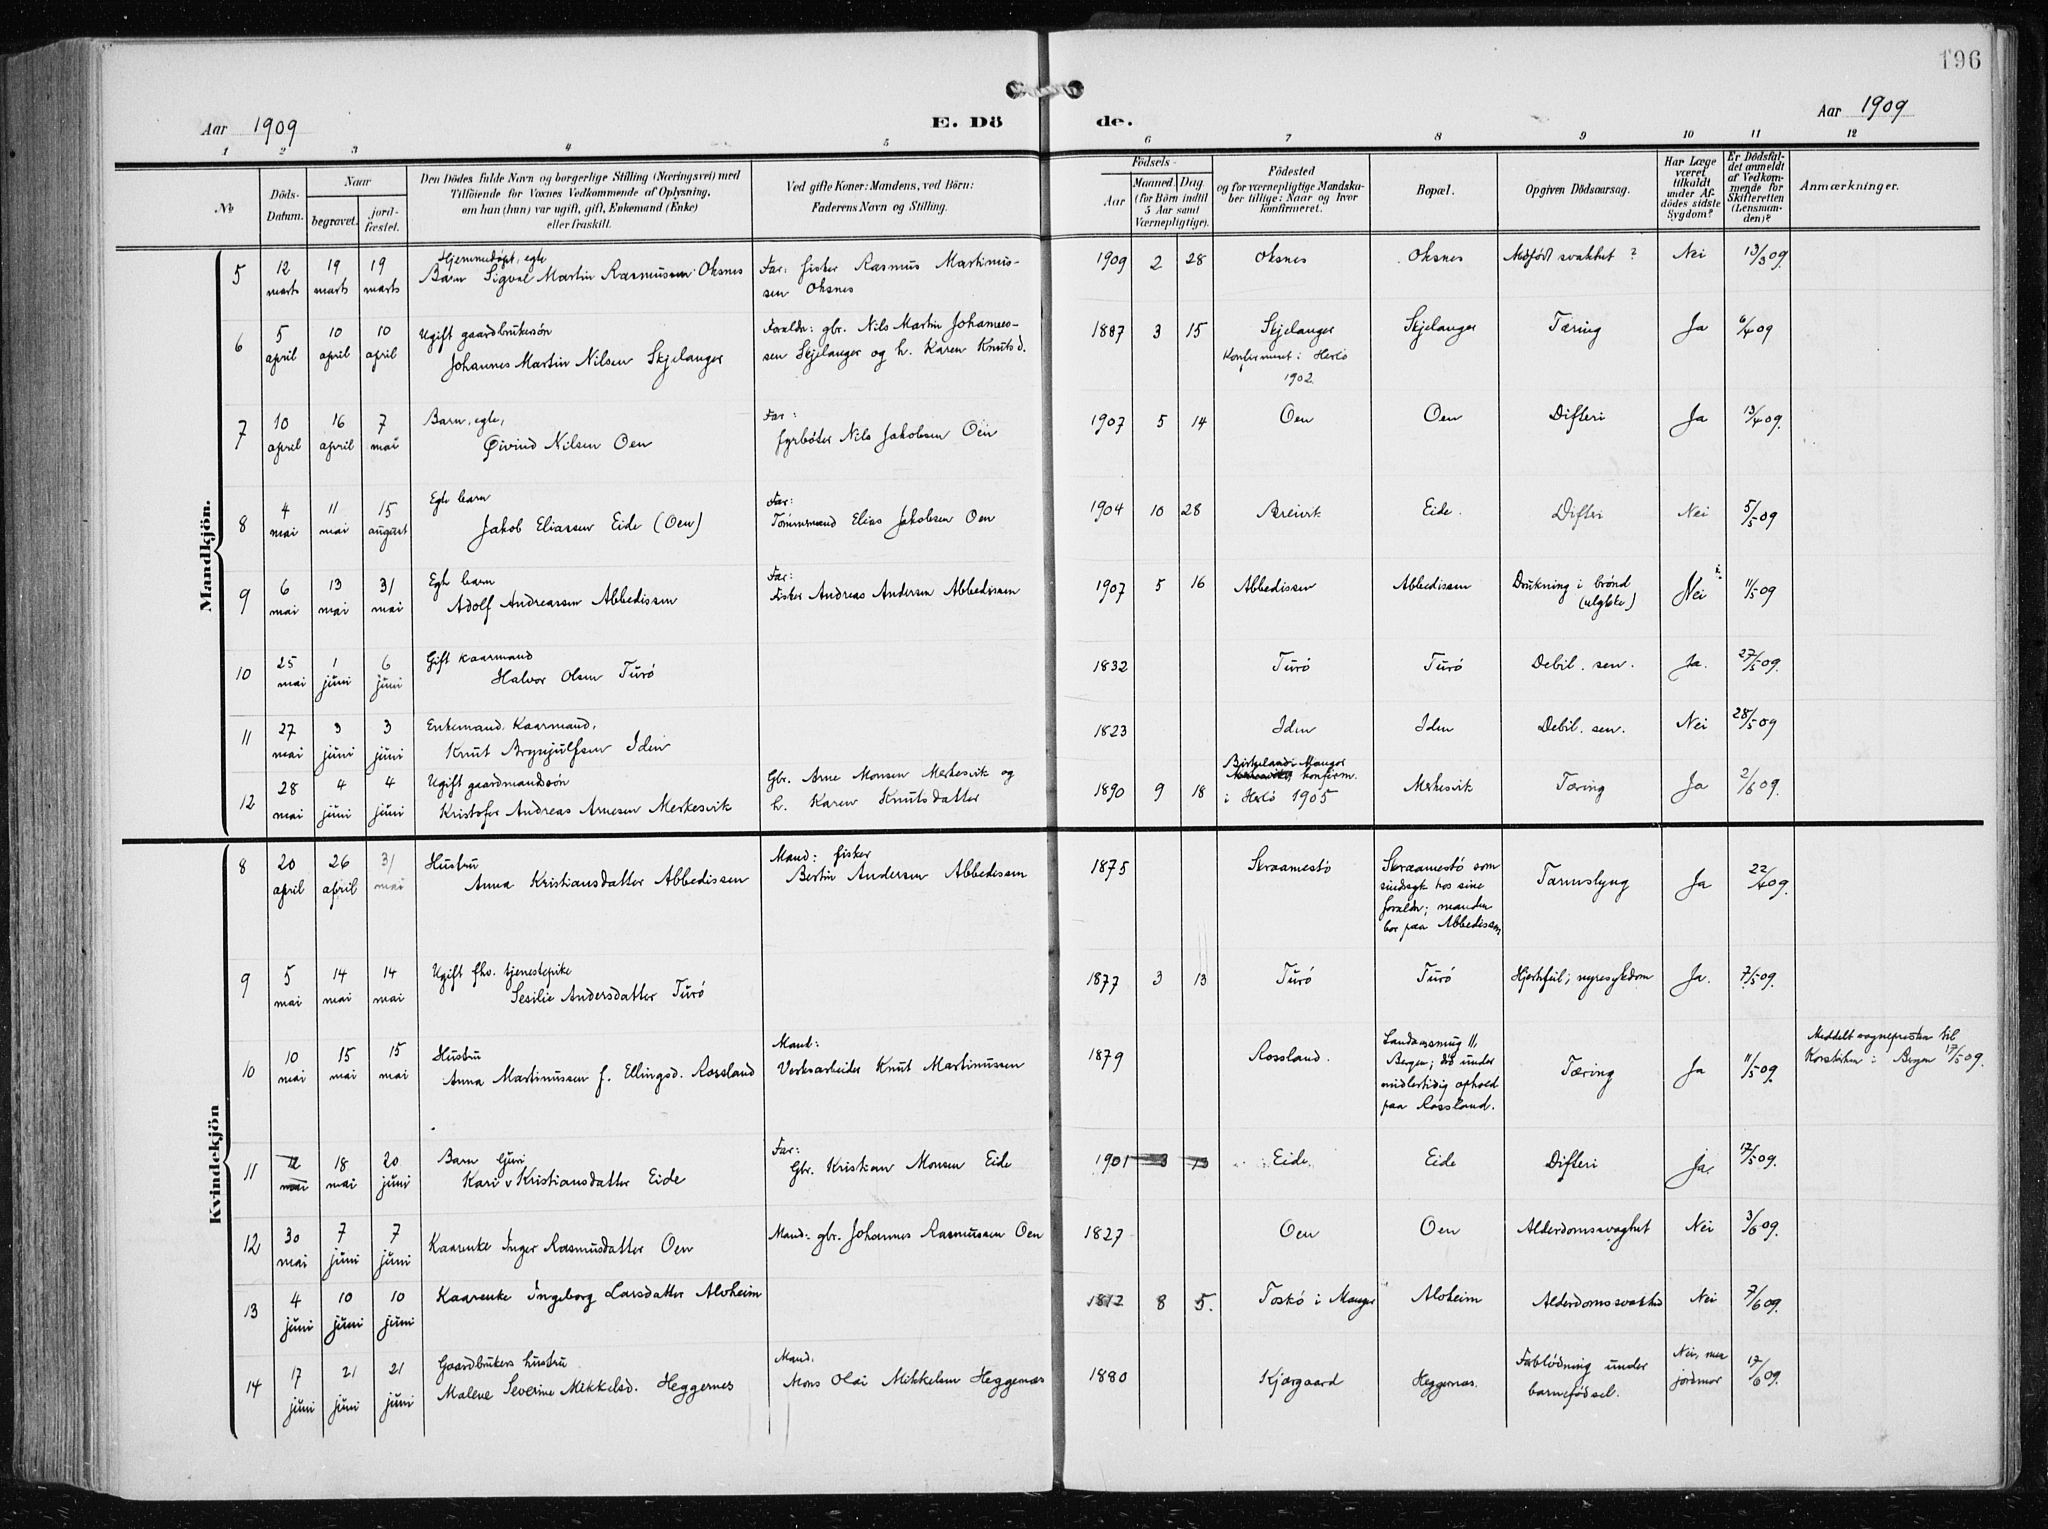 196
Aar 1909
E. Döde.
Aar 1909
1 2 3 4 5 6 7 8 9 10 11 12
No.
Döds-Datum.
Naar
begravet.
jord-fæstet.
Den Dödes fulde Navn og borgerlige Stilling (Næringsvei) med
Tilföiende for Voxnes Vedkommende af Oplysning,
om han (hun) var ugift, gift, Enkemand (Enke)
eller fraskilt.
Ved gifte Koner: Mandens, ved Börn:
Faderens Navn og Stilling.
Födsels-
Aar
Maaned. Dag.
(for Börn indtil
5 Aar samt
Værnepligtige).
Födested
og for værnepligtige Mandska-
ber tillige: Naar og hvor
konfirmeret.
Bopæl.
Opgiven Dödsaarsag.
Har Læge
været
tilkaldt
under Af-
dödes sidste
Sygdom?
Er Dödsfal-
det anmeldt
af Vedkom-
mende for
Skifteretten
(Lensman-
den)?
Anmærkninger.
Mandkjön.
5 12 marts 19 marts 19 marts Hjemmedøpt, egte Barn Sigval Martin Rasmussen Oksnes Far: fisker Rasmus Martinus-sen Oksnes 1909 2 28 Oksnes Oksnes Medfødt svakhet ? Nei 13/3 09.
6 5 april 10 april 10 april Ugift gaardbrukersøn Johannes Martin Nilsen Skjelanger Foreldr: gbr. Nils Martin Johannes-sen Skjelanger og h. Karen Knutsd. 1887 3 15 Skjelanger Konfirmert i Herlø 1902. Skjelanger Tæring Ja 6/4 09
7 10 april 16 april 7 mai Barn, egte, Øivind Nilsen Oen Far: fyrbøter Nils Jakobsen Oen 1907 5 14 Oen Oen Difteri Ja 13/4 09.
8 4 mai 11 mai 15 august Egte barn Jakob Eliassen Eide (Oen) Far: Tømmermand Elias Jakobsen Oen 1904 10 28 Breivik Eide. Difteri Nei 5/5 09
9 6 mai 13 mai 31 mai Egte barn Adolf Andreassen Abbedissen Far: Fisker Andreas Andersen Abbedissen 1907 5 16 Abbedissen Abbedissen Drukning i brønd (ulykke) Nei 11/5 09
10 25 mai 1 juni 6 juni Gift kaarmand Halvor Olsen Turø 1832 Turø Turø Debil. sen. Ja. 27/5 09.
11 27 mai 3 juni 3 juni Enkemand. Kaarmand, Knut Brynjulfsen Iden 1823 Iden Iden Debil. sen. Nei 28/5 09
12 28 mai 4 juni 4 juni Ugift gaardmandssøn Kristofer Andreas Arnesen Merkesvik Gbr. Arne Monsen Merkesvik og h. Karen Knutsdatter 1890 9 18 Birkeland i Manger konfirm. i Herlø 1905 Merkesvik Tæring Ja 2/6 09.
Kvindekjön
8 20 april 26 april 31 mai Hustru Anna Kristiansdatter Abbedissen Mand: fisker Bertin Andersen Abbedissen 1875 Skraamestø Skraamestø som sindssyk hos sine foreldr; manden bor paa Abbedissen Tarmslyng Ja 22/4 09.
9 5 mai 14 mai 14 mai Ugift fhv. tjenestepike Sesilie Andersdatter Turø 1877 3 13 Turø Turø Hjertefeil; nyresykdom Ja. 7/5 09.
10 10 mai 15 mai 15 mai Hustru Anna Martinussen f. Ellingsd. Rossland Mand: Verksarbeider Knut Martinussen 1879 Rossland. Bergen; død under midlertidig ophold paa Rossland. Tæring Ja 11/5 09. Meddelt sognepresten til Korskirken i Bergen 17/5 09.
11 12 mai 18 mai 20 juni Barn Guri Kari Kristiansdatter Eide Far: Gbr. Kristian Monsen Eide 1901 3 13 Eide Eide Difteri Ja. 17/5 09.
12 30 mai 7 juni 7 juni Kaarenke Inger Rasmusdatter Oen Mand: gbr. Johannes Rasmussen Oen 1827 Oen Oen Alderdomssvaghet Nei 3/6 09.
13 4 juni 10 juni 10 juni Kaarenke Ingeborg Larsdatter Alvheim 1812 8 5. Toskø i Manger Alvheim Alderdomssvakhet Nei 7/6 09.
14 17 juni 21 juni 21 juni Gaardbrukers hustru Malene Severine Mikkelsd. Heggernes Mand. Mons Olai Mikkelsen Heggernæs 1880 Kjærgaard Heggernæs. Forblødning under barnefødsel. Nei, men jordmor 17/6 09.